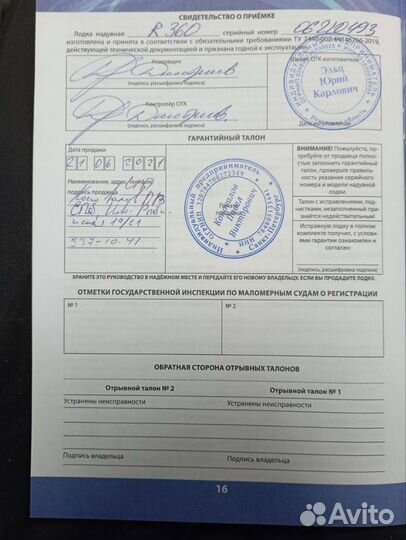 СВИДЕТЕЛЬСТВО О ПРИЁМКЕ
Лодка надувная R 360 серийный номер
изготовлена и принята в соответствии с обязательными требованиями ТУ 7440-002-64146766-2019,
действующей технической документацией и признана годной к эксплуатации
Упаковщик
(подпись, расшифровка подписи)
Контролёр ОТК
(подпись, расшифровка подписи)
Эльц
Юрий
Карлович
ГАРАНТИЙНЫЙ ТАЛОН
Дата продажи
21 06 2021
Наименование, адрес, телефон,
подпись продавца
337-10-41
Индивидуальный предприниматель
Коновалов
Павел
Викторович
Санкт-Петербург
ВНИМАНИЕ! Пожалуйста, по-
требуйте от продавца полно-
стью заполнить гарантийный
талон, проверьте правиль-
ность указания серийного
номера и модели надувной
лодки.
Талон с исправлениями, под-
чистками, незаполненный при-
знаётся недействительным!
Исправную лодку в полном
комплекте получил, с услови-
ями гарантии ознакомлен и
согласен:
(подпись, расшифровка подписи)
ХРАНИТЕ ЭТО РУКОВОДСТВО В НАДЁЖНОМ МЕСТЕ И ПЕРЕДАЙТЕ ЕГО НОВОМУ ВЛАДЕЛЬЦУ, ЕСЛИ ВЫ ПРОДАДИТЕ ЛОДКУ.
ОТМЕТКИ ГОСУДАРСТВЕННОЙ ИНСПЕКЦИИ ПО МАЛОМЕРНЫМ СУДАМ О РЕГИСТРАЦИИ
№ 1 № 2
ОБРАТНАЯ СТОРОНА ОТРЫВНЫХ ТАЛОНОВ
Отрывной талон № 2 Отрывной талон № 1
Устранены неисправности Устранены неисправности
Подпись владельца Подпись владельца
16
Avito